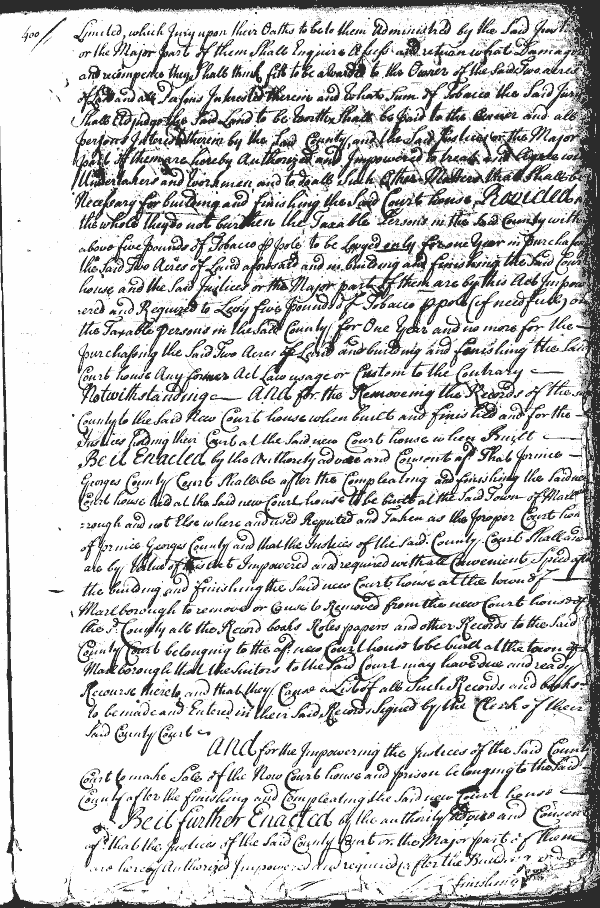 400/
Limited, which Jury upon their Oaths to be to them Administred by the Said Justices
or the Major part of them Shall Enquire Assess and return what Damages
and recompence they Shall think fitt to be awarded to the Owner of the Said Two acres
of Land and all Persons Interested therein and what Sum of Tobacco the Said Jury
Shall Adjudge the Said Land to be worth Shall be paid to the Owner and all
persons Interested therein by the Said County, and the Said Justices or the Major
part of them are hereby Authorized and Impowered to treat and Agree with
Undertakers and workmen and to do all Such Other Matters that Shall be
Necessary for building and finishing the Said Court house, Provided
the whole they do not burthen the Taxable Persons in the Said County with
above five pounds of Tobacco p pole to be Levyed only for one Year in purchasing
the Said Two Acres of Land aforesaid and in building and finishing the Said Court
house and the Said Justices or the Major part of them are by this Act Impow
ered and Required to Levy five pounds of Tobacco p pole (if needfull) on
the Taxable persons in the Said County, for One Year and no more for the
purchasing the Said Two Acres of Land and building and finishing the Said
Court house Any former Act Law usage or Custom to the Contrary
Notwithstanding And for the Removeing the Records of the
County to the Said New Court house when built and finished and for the
Justices holding their Court at the Said new Court house when Built
Be it Enacted by the Authority advice and Consent afd. That Prince
Georges County Court Shall be after the Compleating and finishing the Said new
Court house held at the Said new Court house to be built at the Said Town of Marl
=rough and not Else where and used Reputed and Taken as the proper Court house
of Prince Georges County and that the Justices of the Said County Court Shall and
are by Virtue of this act Impowered and required with all Convenient Speed after
the building and finishing the Said new Court house at the town of
Marlborough to remove or Cause to Removed from the new Court house of
the Sd. County all the Record books Roles papers and other Records to the Said
County Court belonging to the afd. new Court house to be built at the town of
Marlborough that the Suitors to the Said Court may have due and ready
Recourse thereto, and that they Cause a List of all Such Records and books
to be made and Entered in their Said Records Signed by the Clerk of their
Said County Court
And for the Impowering the Justices of the Said County
Court to make Sale of the Now Court house and prison belonging to the Said
County after the finishing and Compleating the Said new Court house
Be it further Enacted by the authority advice and Consent
afd. that the Justices of the Said County Court or the Major part of them
are hereby Authorized Impowered and required after the Building and
finishing